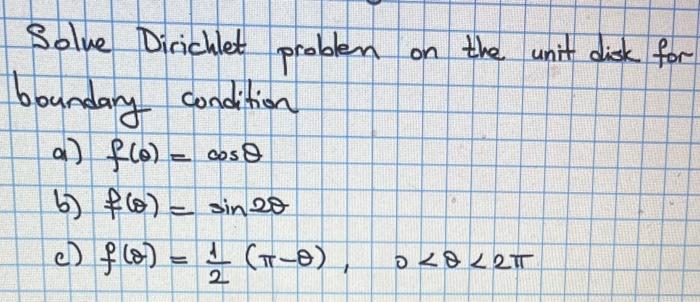 Solve Dirichlet problem on the unit disk for
boundary condition
a) f(θ) = cosθ
b) f(θ) = sin2θ
c) f(θ) = 1/2 (π-θ), 0<θ<2π